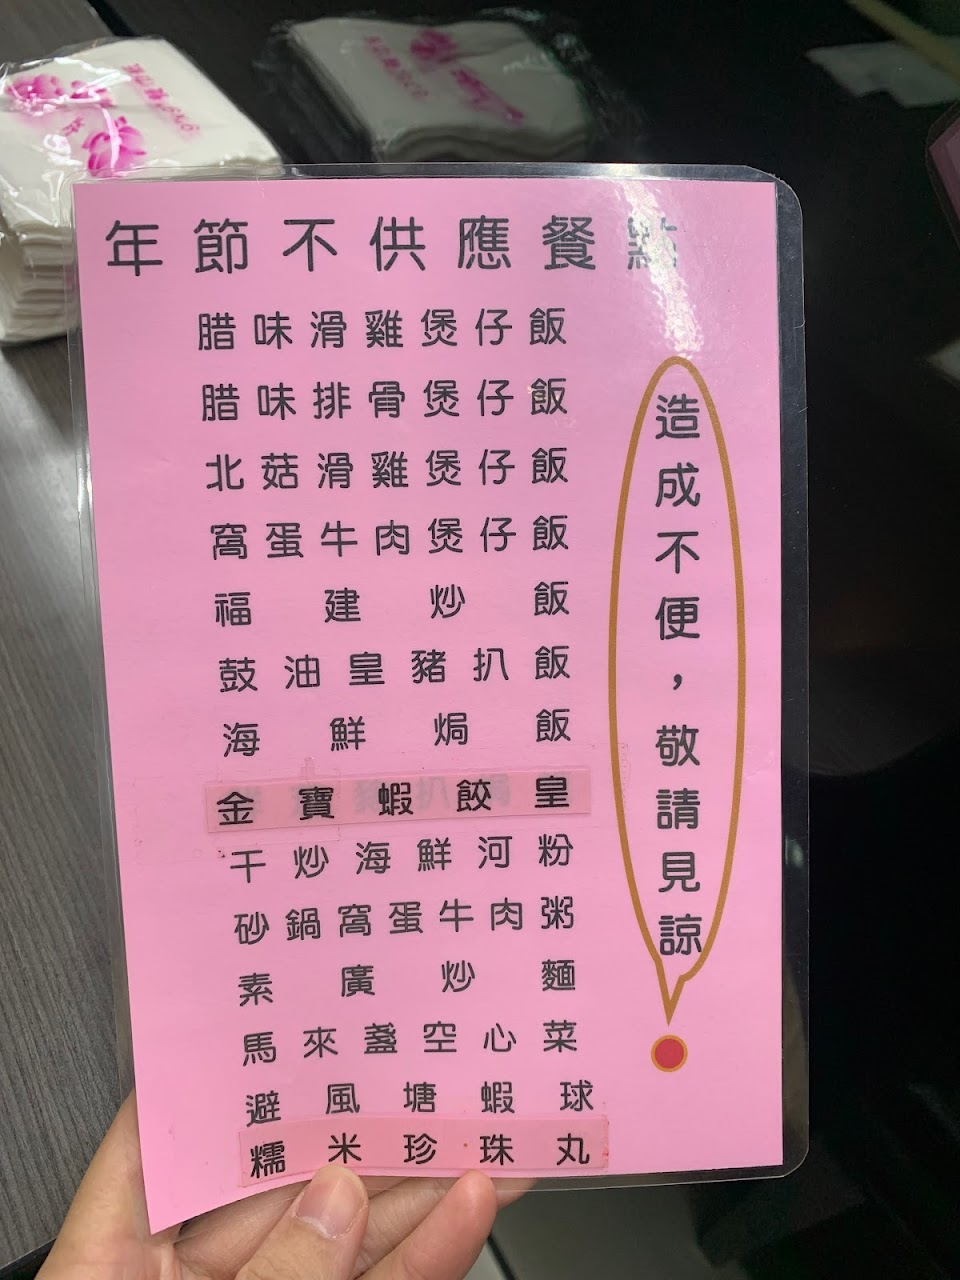 年節不供應餐點
腊味滑雞煲仔飯
腊味排骨煲仔飯
北菇滑雞煲仔飯
窩蛋牛肉煲仔飯
福建炒飯
鼓油皇豬扒飯
海鮮焗飯
金寶蝦餃皇
干炒海鮮河粉
砂鍋窩蛋牛肉粥
素廣炒麵
馬來盞空心菜
避風塘蝦球
糯米珍珠丸
造成不便，敬請見諒